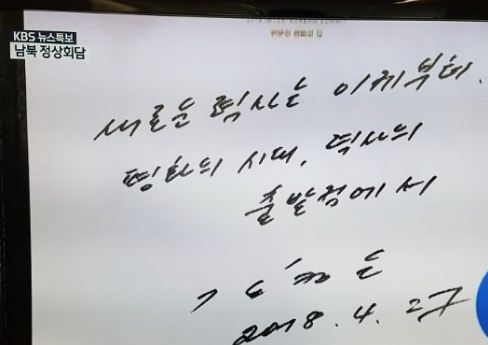 KBS 뉴스특보
남북 정상회담
2018 INTER-KOREAN SUMMIT
판문점 평화의 집
새로운 력사는 이제부터.
평화의 시대, 력사의
출발점에서
김정은
2018. 4. 27